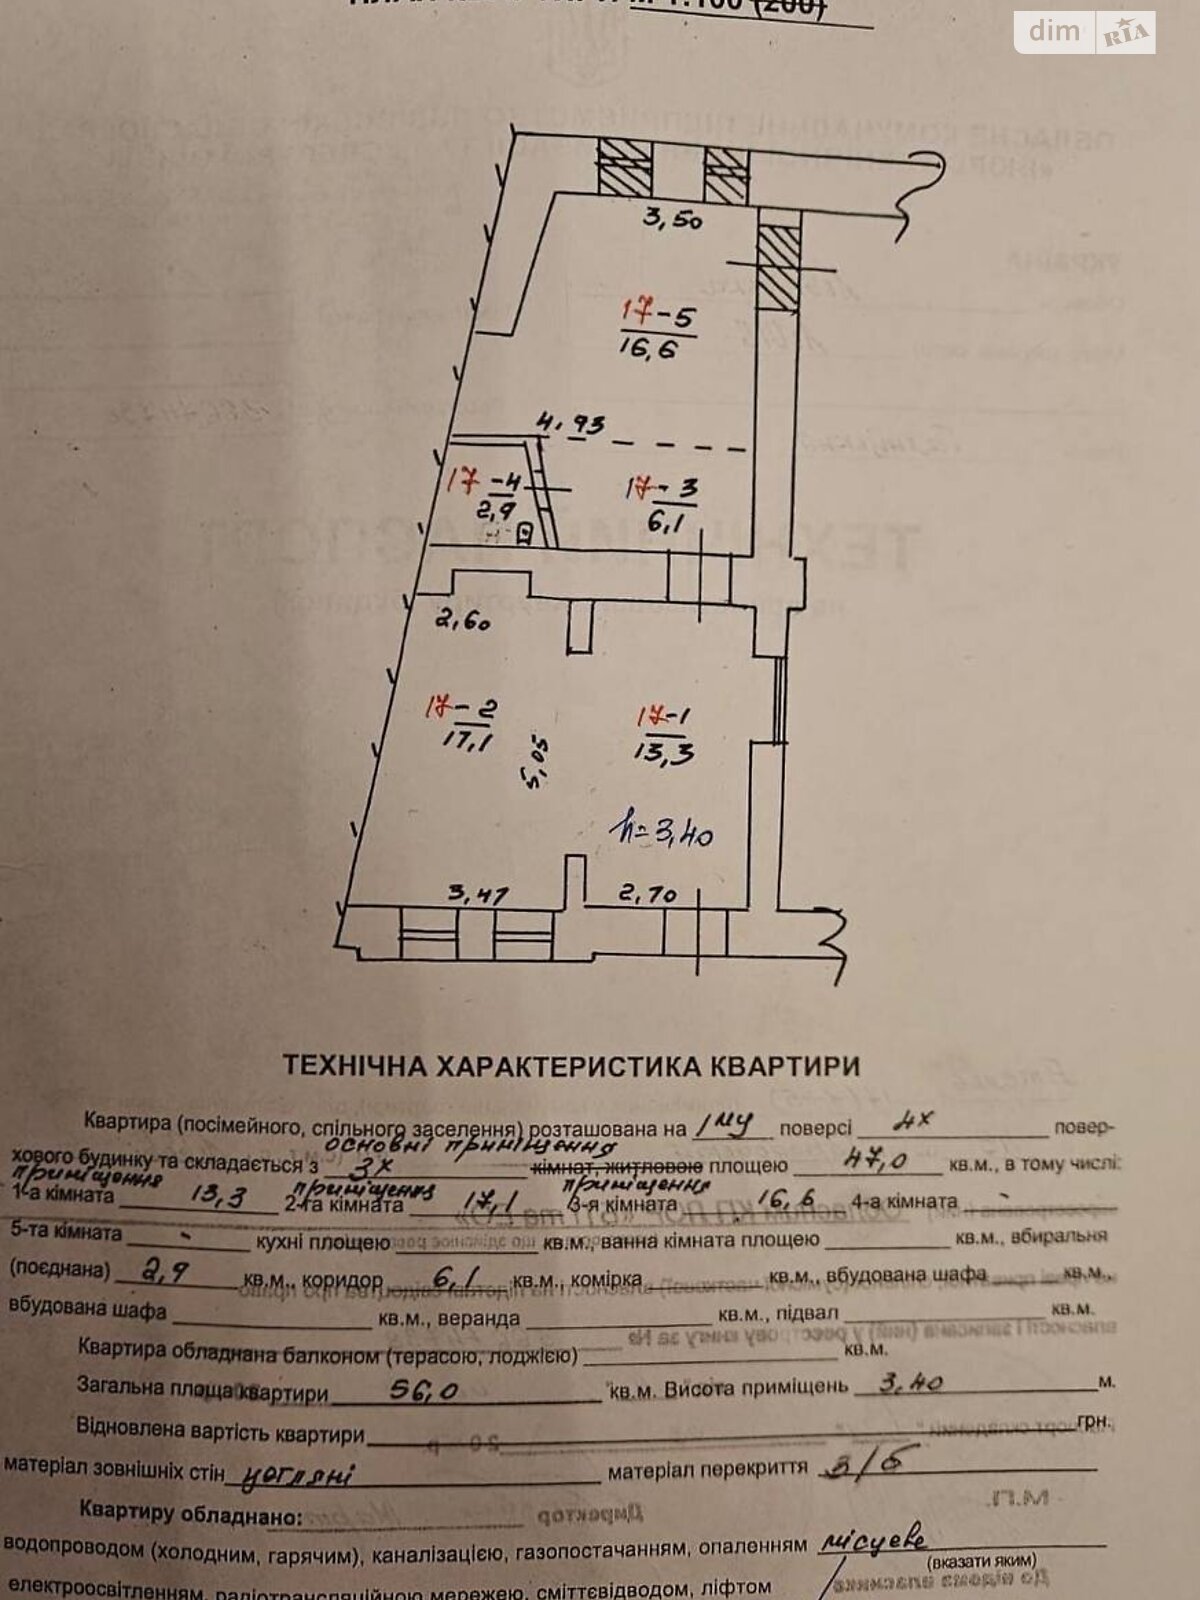 1:100 (200)
dim RIA
3,50
17-5
16,6
4,93
17-4
2,9
17-3
6,1
2,60
17-2
17,1
5,05
17-1
13,3
h=3,40
3,47
2,70
ТЕХНІЧНА ХАРАКТЕРИСТИКА КВАРТИРИ
Квартира (посімейного, спільного заселення) розташована на 1му поверсі 4х повер-
основні приміщення
хового будинку та складається з 3х кімнат, житловою площею 47,0 кв.м., в тому числі:
приміщення приміщення приміщення
1-а кімната 13,3 2-га кімната 17,1 3-я кімната 16,6 4-а кімната -
5-та кімната - кухні площею кв.м., ванна кімната площею кв.м., вбиральня
(поєднана) 2,9 кв.м., коридор 6,1 кв.м., комірка кв.м., вбудована шафа кв.м.,
вбудована шафа кв.м., веранда кв.м., підвал кв.м.
Квартира обладнана балконом (терасою, лоджією) кв.м.
Загальна площа квартири 56,0 кв.м. Висота приміщень 3,40 м.
Відновлена вартість квартири грн.
матеріал зовнішніх стін цегляні матеріал перекриття з/б
Квартиру обладнано:
водопроводом (холодним, гарячим), каналізацією, газопостачанням, опаленням місцеве
(вказати яким)
електроосвітленням, радіотрансляційною мережею, сміттєвідводом, ліфтом